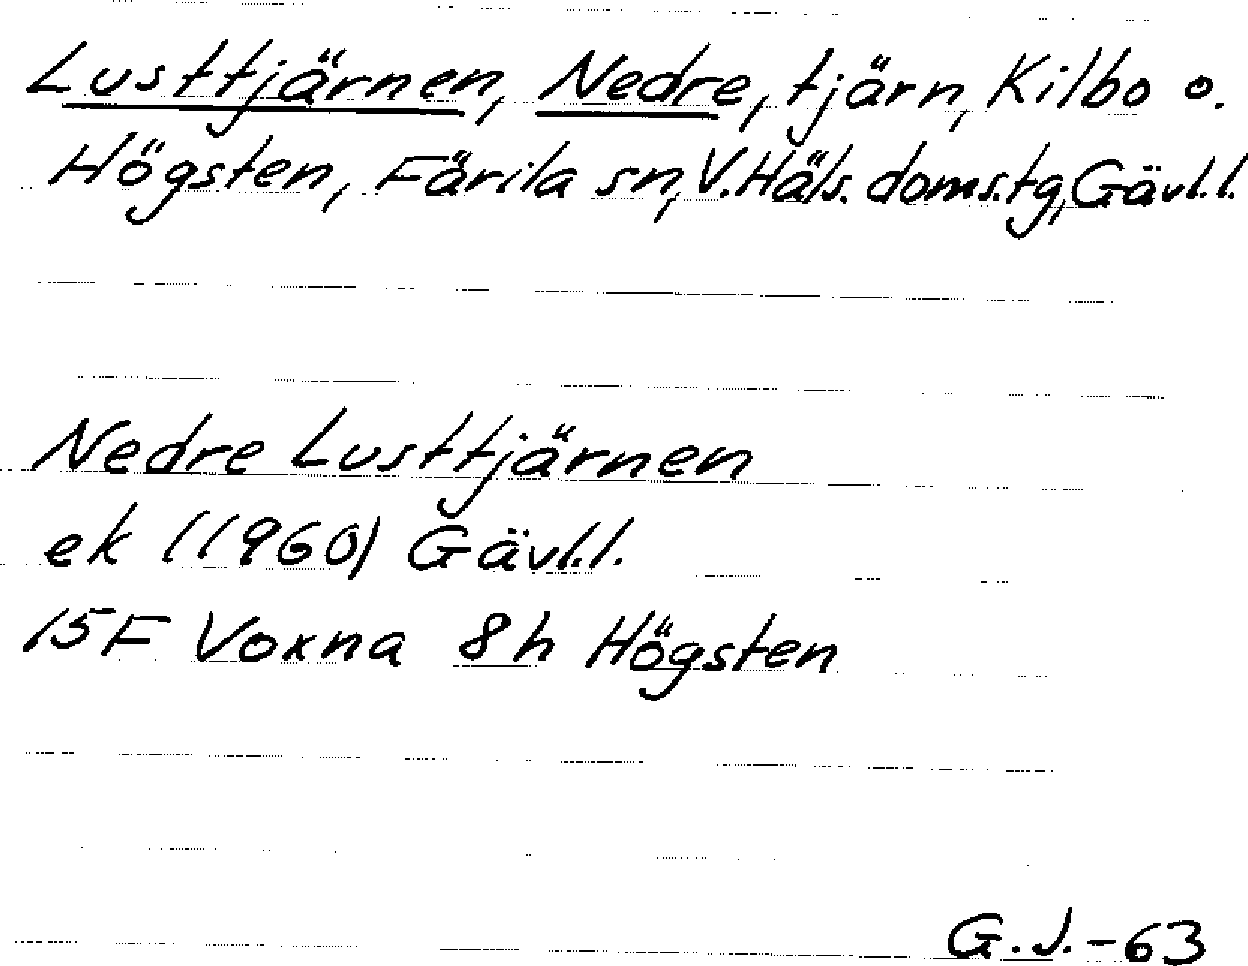 Lusttjärnen, Nedre, tjärn, Kilbo o.
Högsten, Färila sn, V. Häls. doms.tg, Gävl.l.
Nedre Lusttjärnen
ek (1960) Gävl.l.
15F Voxna 8h Högsten
G.J.-63